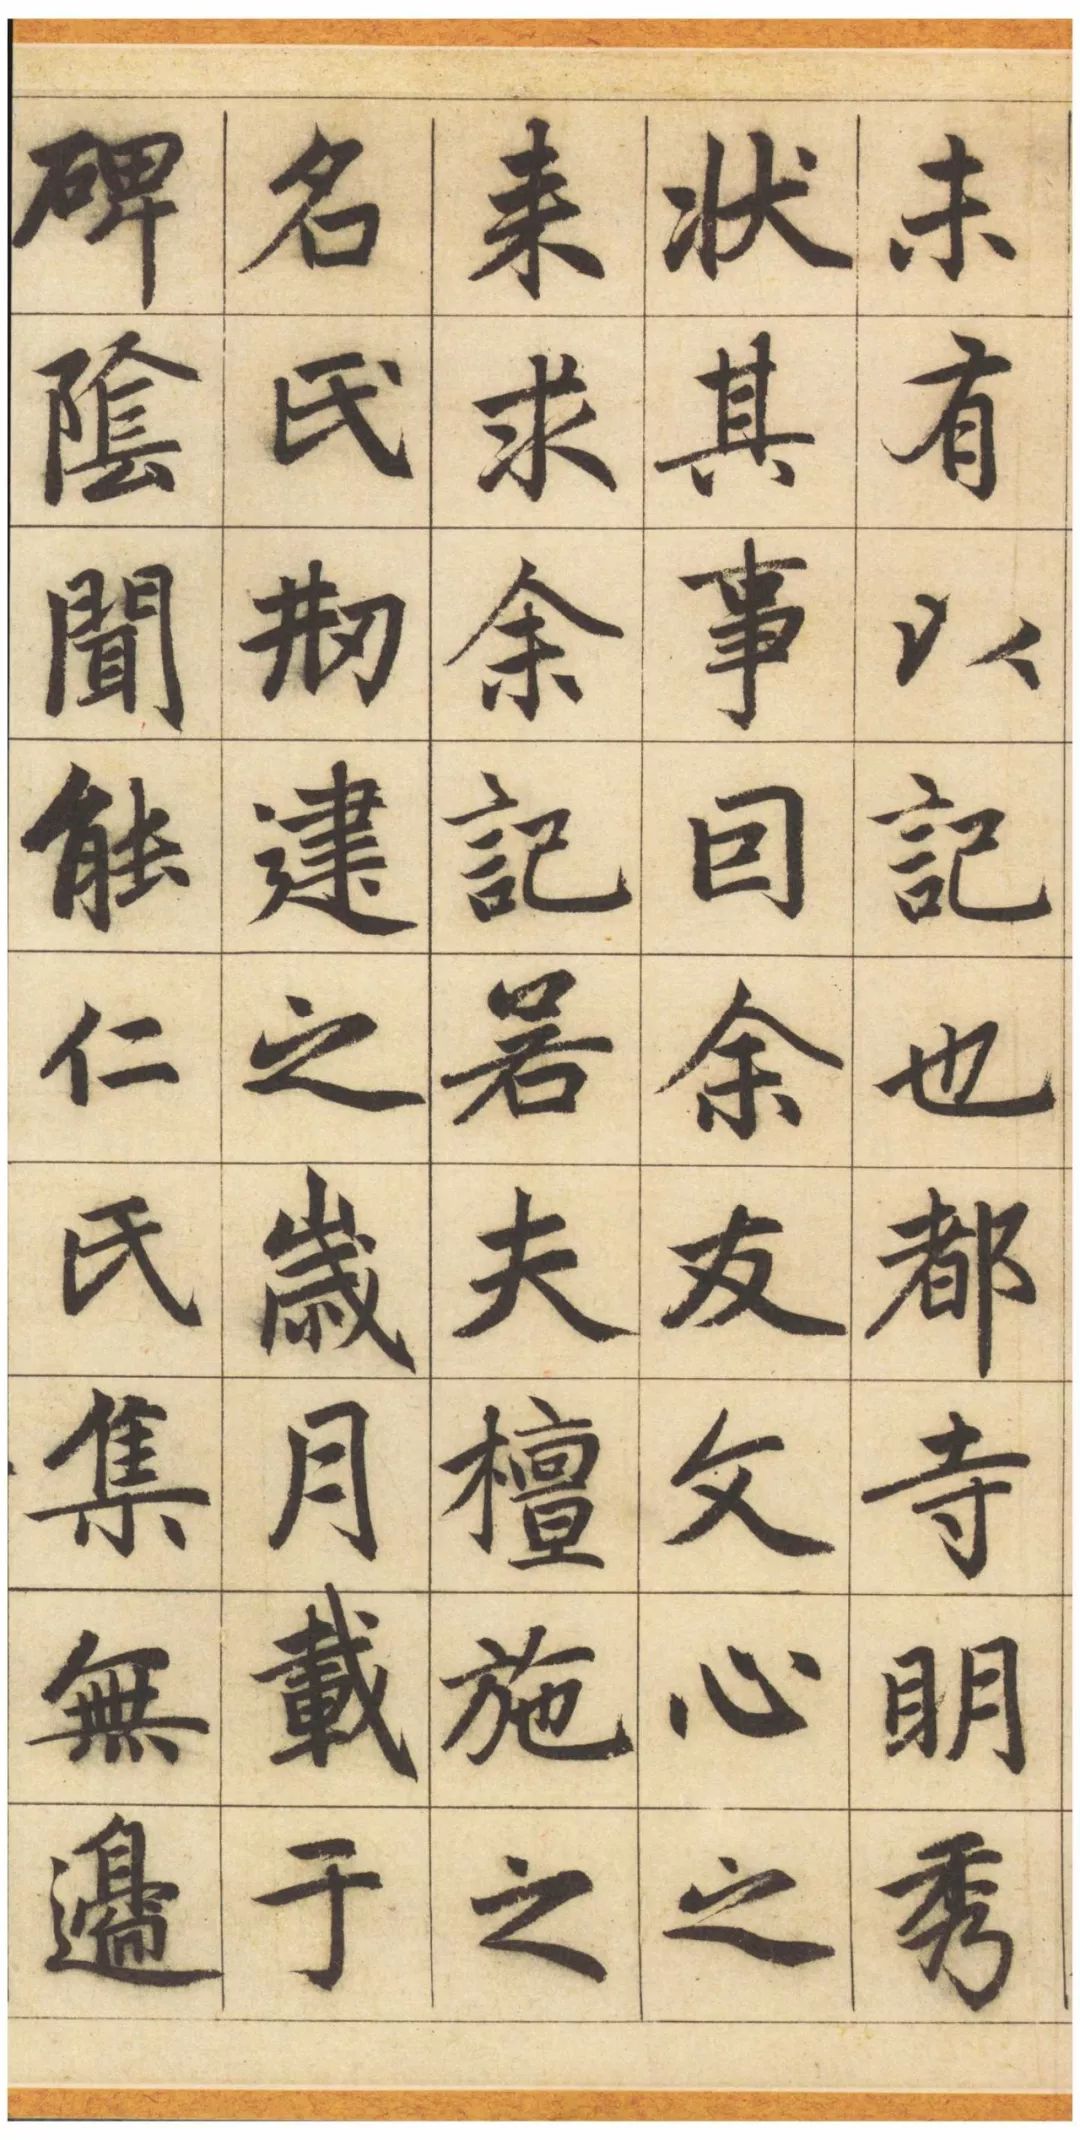 未有以記也都寺明秀
状其事囙余友文心之
来求余記若夫檀施之
名氏刱建之歲月載于
碑陰聞能仁氏集無邊